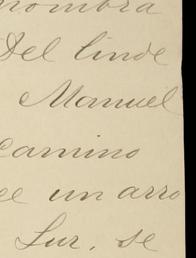 nombra
Del linde
Manuel
camino
ce un arro
Sur, se